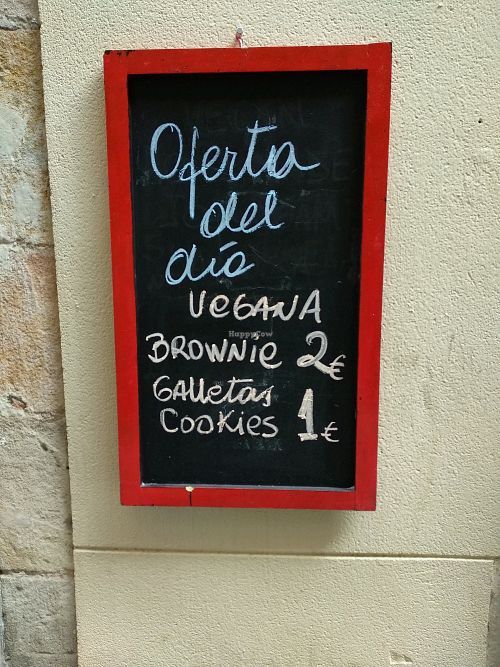 Oferta
del
día
VEGANA
HappyCow
BROWNie 2€
GAlletas
COOKies 1€